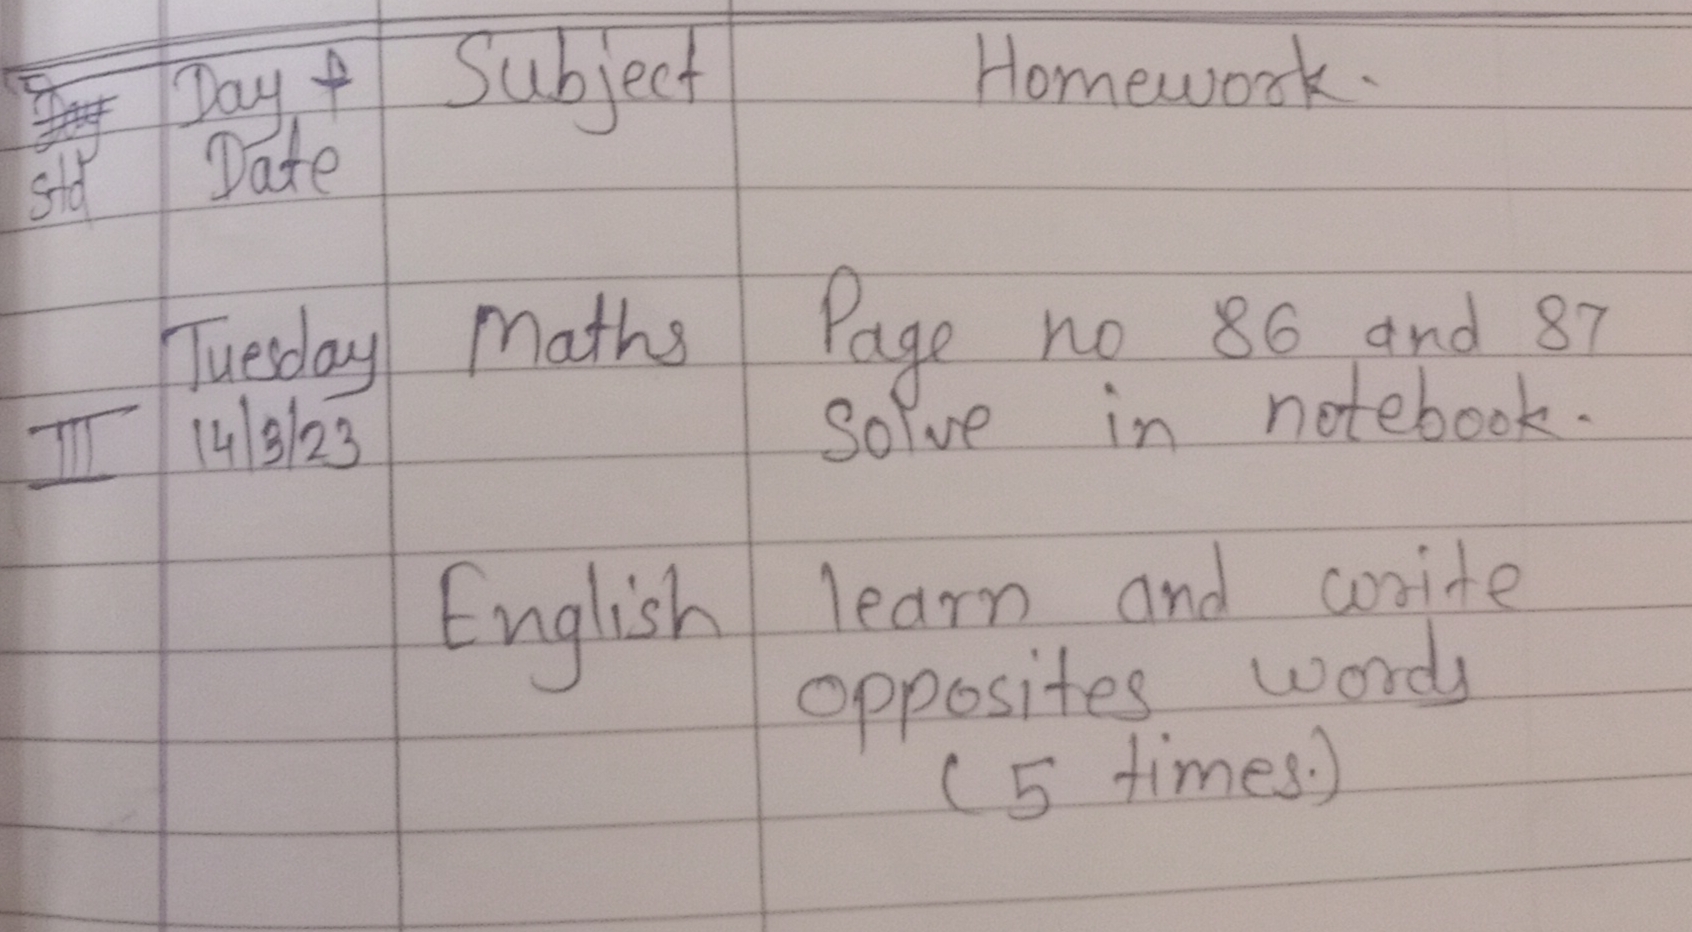 Day & Subject Homework.
Std Date
Tuesday Maths Page no 86 and 87
III 14/3/23 solve in notebook.
English learn and write
opposites words
(5 times.)